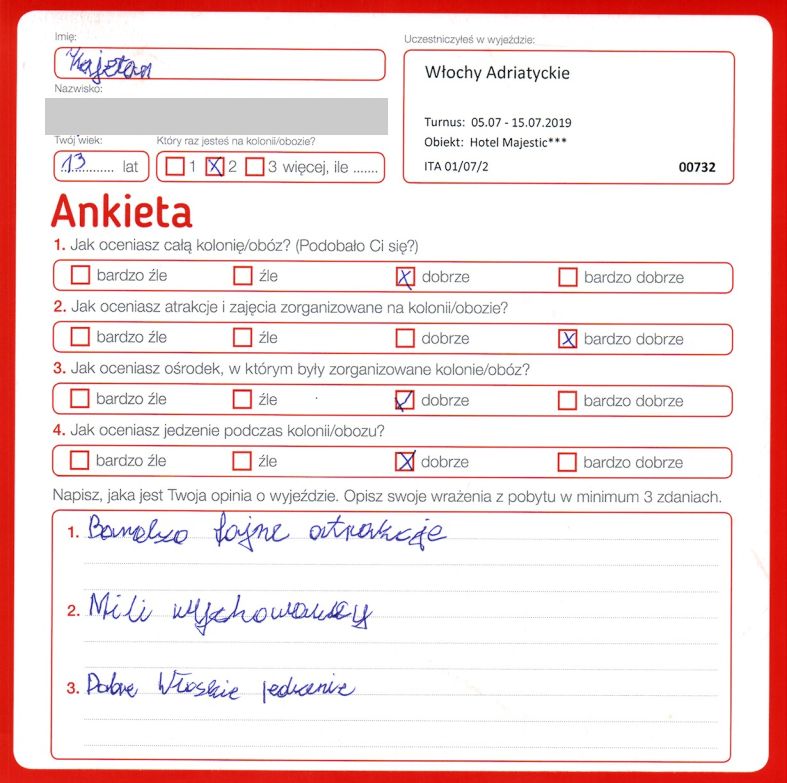 Imię:
Kajetan
Nazwisko:
Twój wiek:
13 lat
Który raz jesteś na kolonii/obozie?
1 X 2 3 więcej, ile .......
Uczestniczyłeś w wyjeździe:
Włochy Adriatyckie
Turnus: 05.07 - 15.07.2019
Obiekt: Hotel Majestic***
ITA 01/07/2 00732
Ankieta
1. Jak oceniasz całą kolonię/obóz? (Podobało Ci się?)
bardzo źle źle X dobrze bardzo dobrze
2. Jak oceniasz atrakcje i zajęcia zorganizowane na kolonii/obozie?
bardzo źle źle dobrze X bardzo dobrze
3. Jak oceniasz ośrodek, w którym były zorganizowane kolonie/obóz?
bardzo źle źle ✓ dobrze bardzo dobrze
4. Jak oceniasz jedzenie podczas kolonii/obozu?
bardzo źle źle X dobrze bardzo dobrze
Napisz, jaka jest Twoja opinia o wyjeździe. Opisz swoje wrażenia z pobytu w minimum 3 zdaniach.
1. Bardzo fajne atrakcje
2. Mili wychowawcy
3. Dobre Włoskie jedzenie